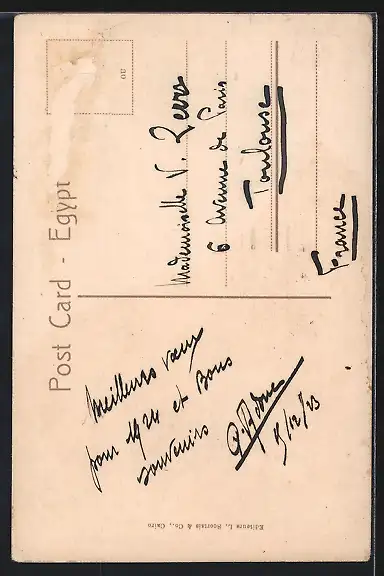 Post Card - Egypt
Mademoiselle V.
6 Avenue de Paris
Toulouse
France
Meilleurs vœux
pour 1924 et Bons
souvenirs
/12/23
Editeurs L. Scortzis & Co., Cairo